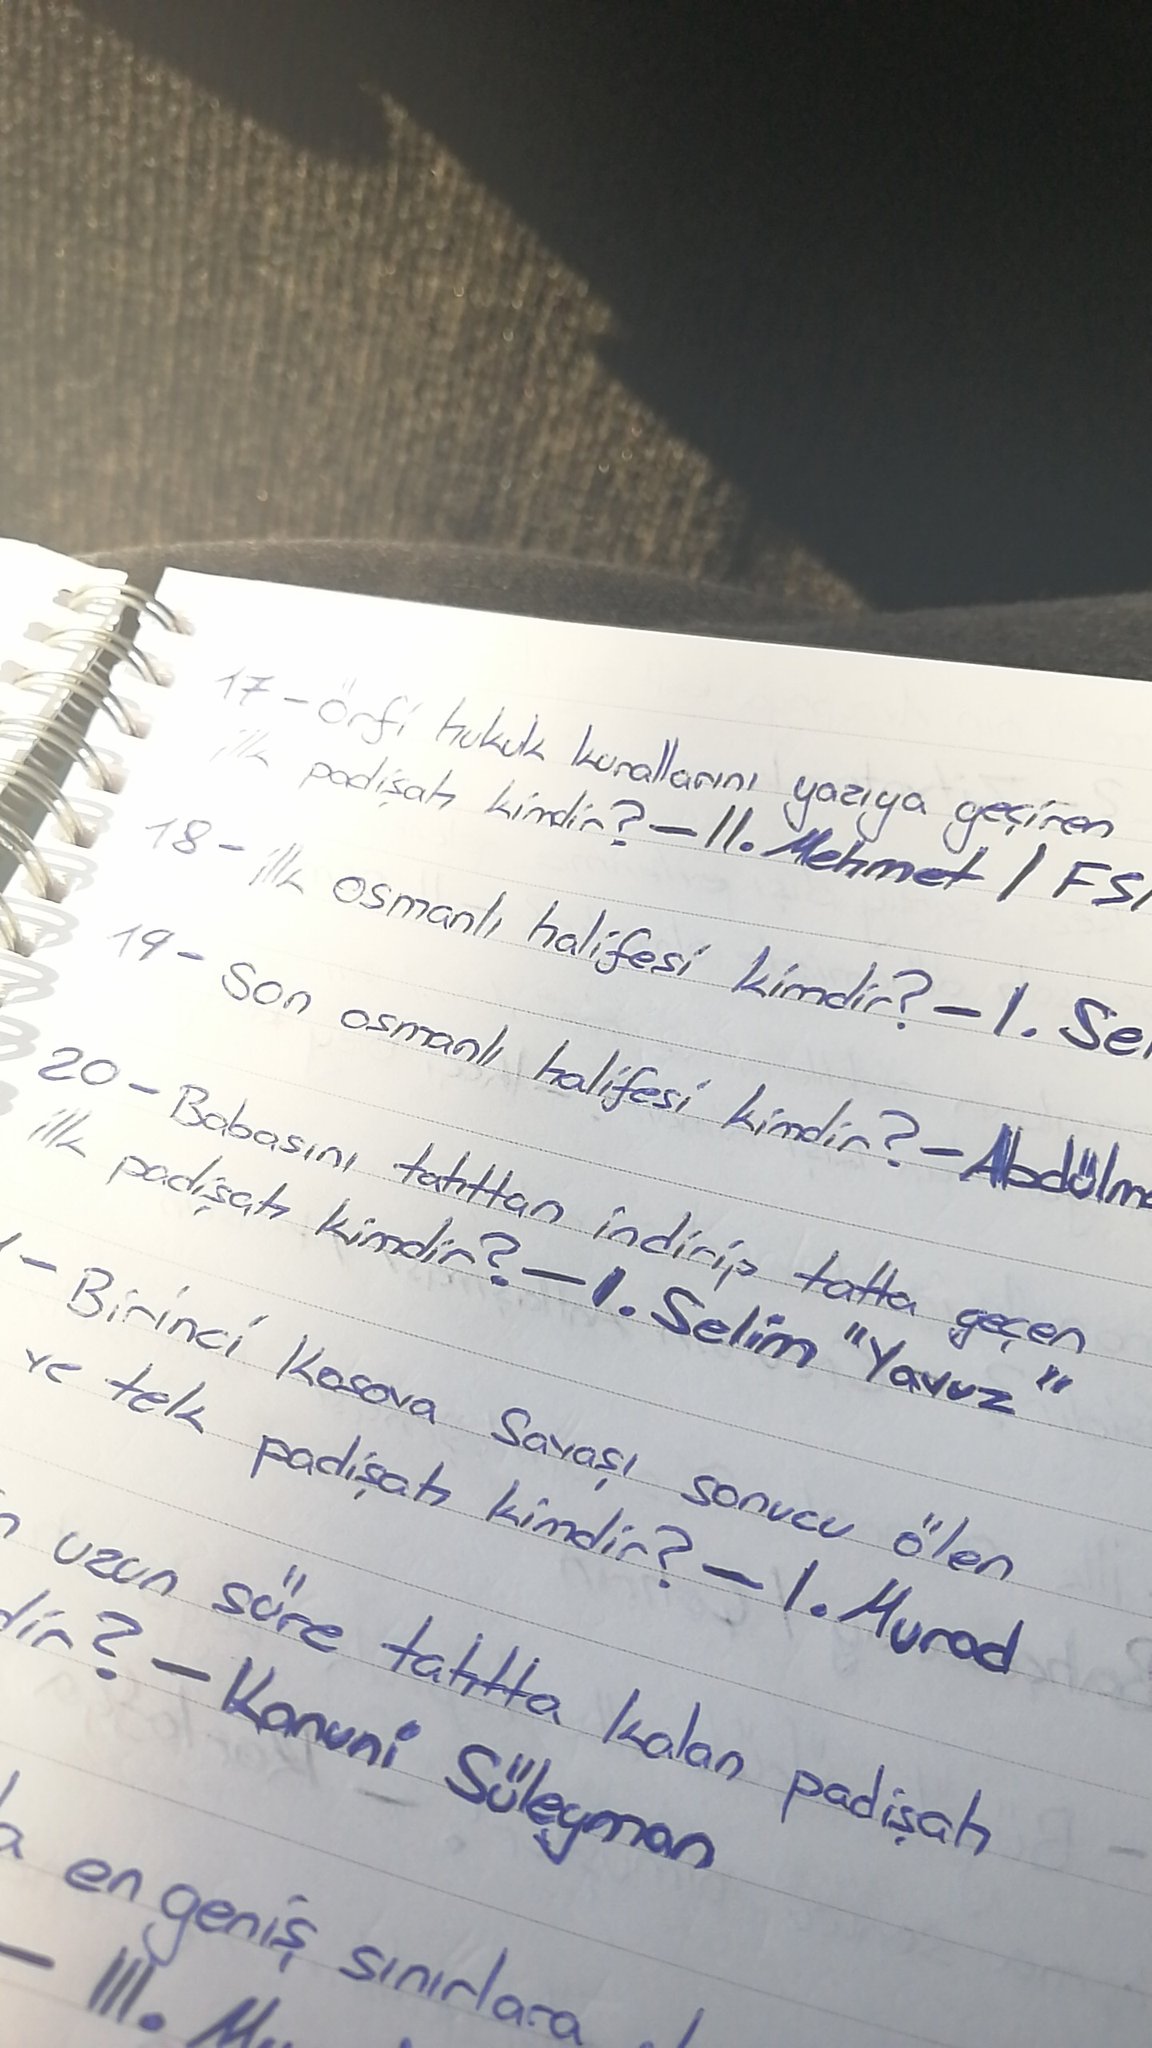 17 - Örfi hukuk kurallarını yazıya geçiren
ilk padişah kimdir? - II. Mehmet / FS
18 - ilk osmanlı halifesi kimdir? - I. Se
19 - Son osmanlı halifesi kimdir? - Abdülm
20 - Babasını tahttan indirip tahta geçen
ilk padişah kimdir? - I. Selim "Yavuz"
- Birinci Kosova Savaşı sonucu ölen
ve tek padişah kimdir? - I. Murad
n uzun süre tahtta kalan padişah
dir? - Kanuni Süleyman
a en geniş sınırlara
- III. Mu